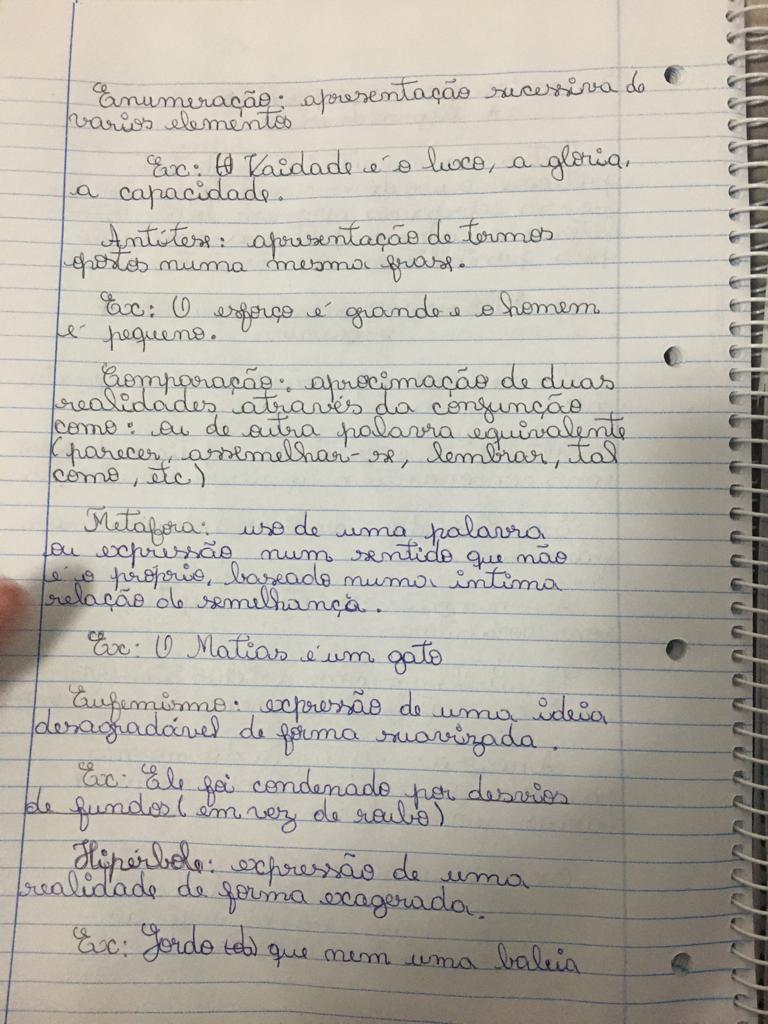 Enumeração: apresentação sucessiva de
varios elementos
Ex: Vaidade é o luxo, a gloria,
a capacidade.
Antítese: apresentação de termos
opostos numa mesma frase.
Ex: O esforço é grande e o homem
é pequeno.
Comparação: aprocimação de duas
realidades através da conjunção
como: ou de outra palavra equivalente
(parecer, assemelhar-se, lembrar, tal
como, etc)
Metafora: uso de uma palavra
ou expressão num sentido que não
é o próprio, baseado numa intima
relação de semelhança.
Ex: O Matias é um gato
Eufemismo: expressão de uma ideia
desagradável de forma suavizada.
Ex: Ele foi condenado por desvios
de fundos (em vez de roubo)
Hipérbole: expressão de uma
realidade de forma exagerada.
Ex: Gordo que nem uma baleia